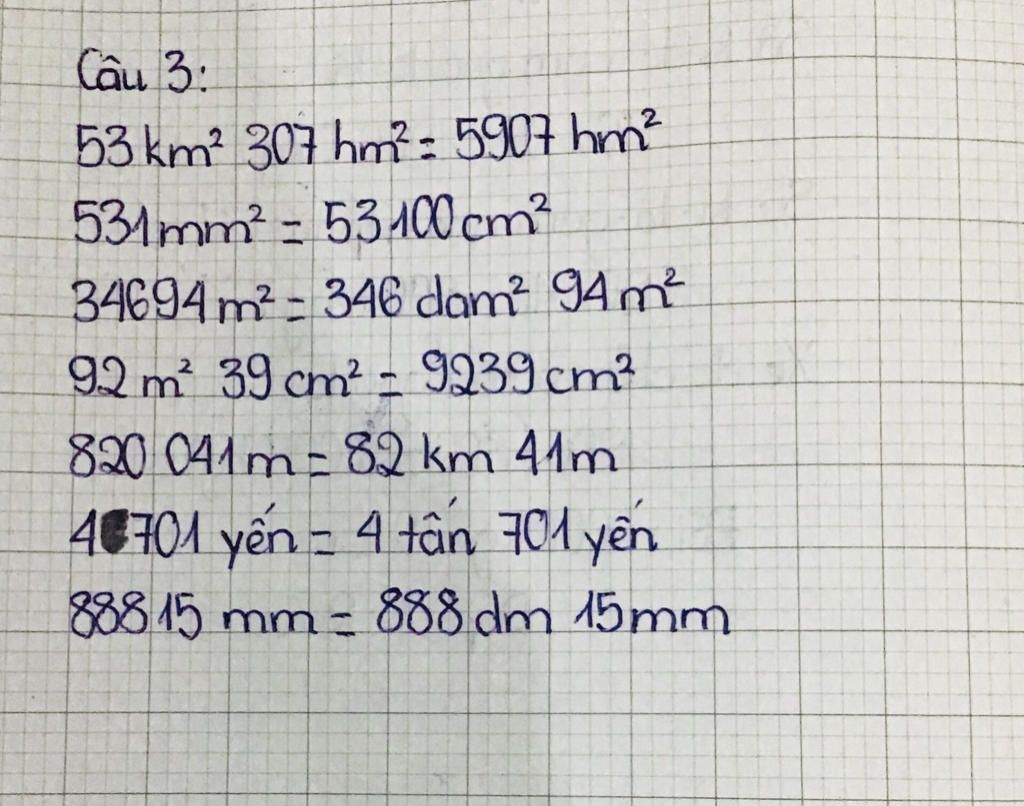 Câu 3:
53 km² 307 hm² = 5907 hm²
531 mm² = 53100 cm²
34694 m² = 346 dam² 94 m²
92 m² 39 cm² = 9239 cm²
820 041 m = 82 km 41 m
4 701 yến = 4 tấn 701 yến
88815 mm = 888 dm 15 mm